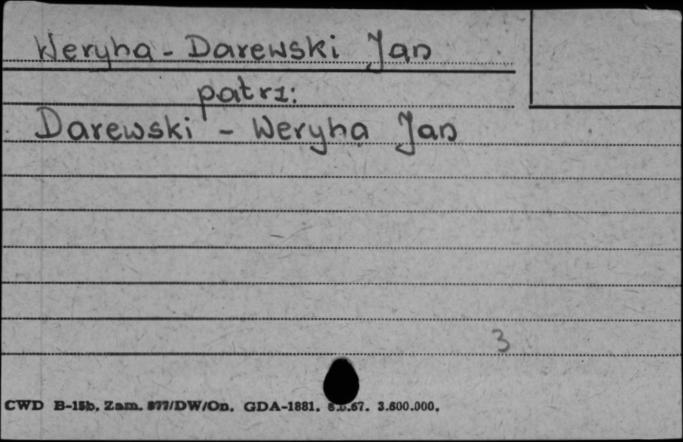 Weryha - Darewski Jan
patrz:
Darewski - Weryha Jan
3
CWD B-15b. Zam. 877/DW/On. GDA-1881. 6.6.67. 3.600.000.